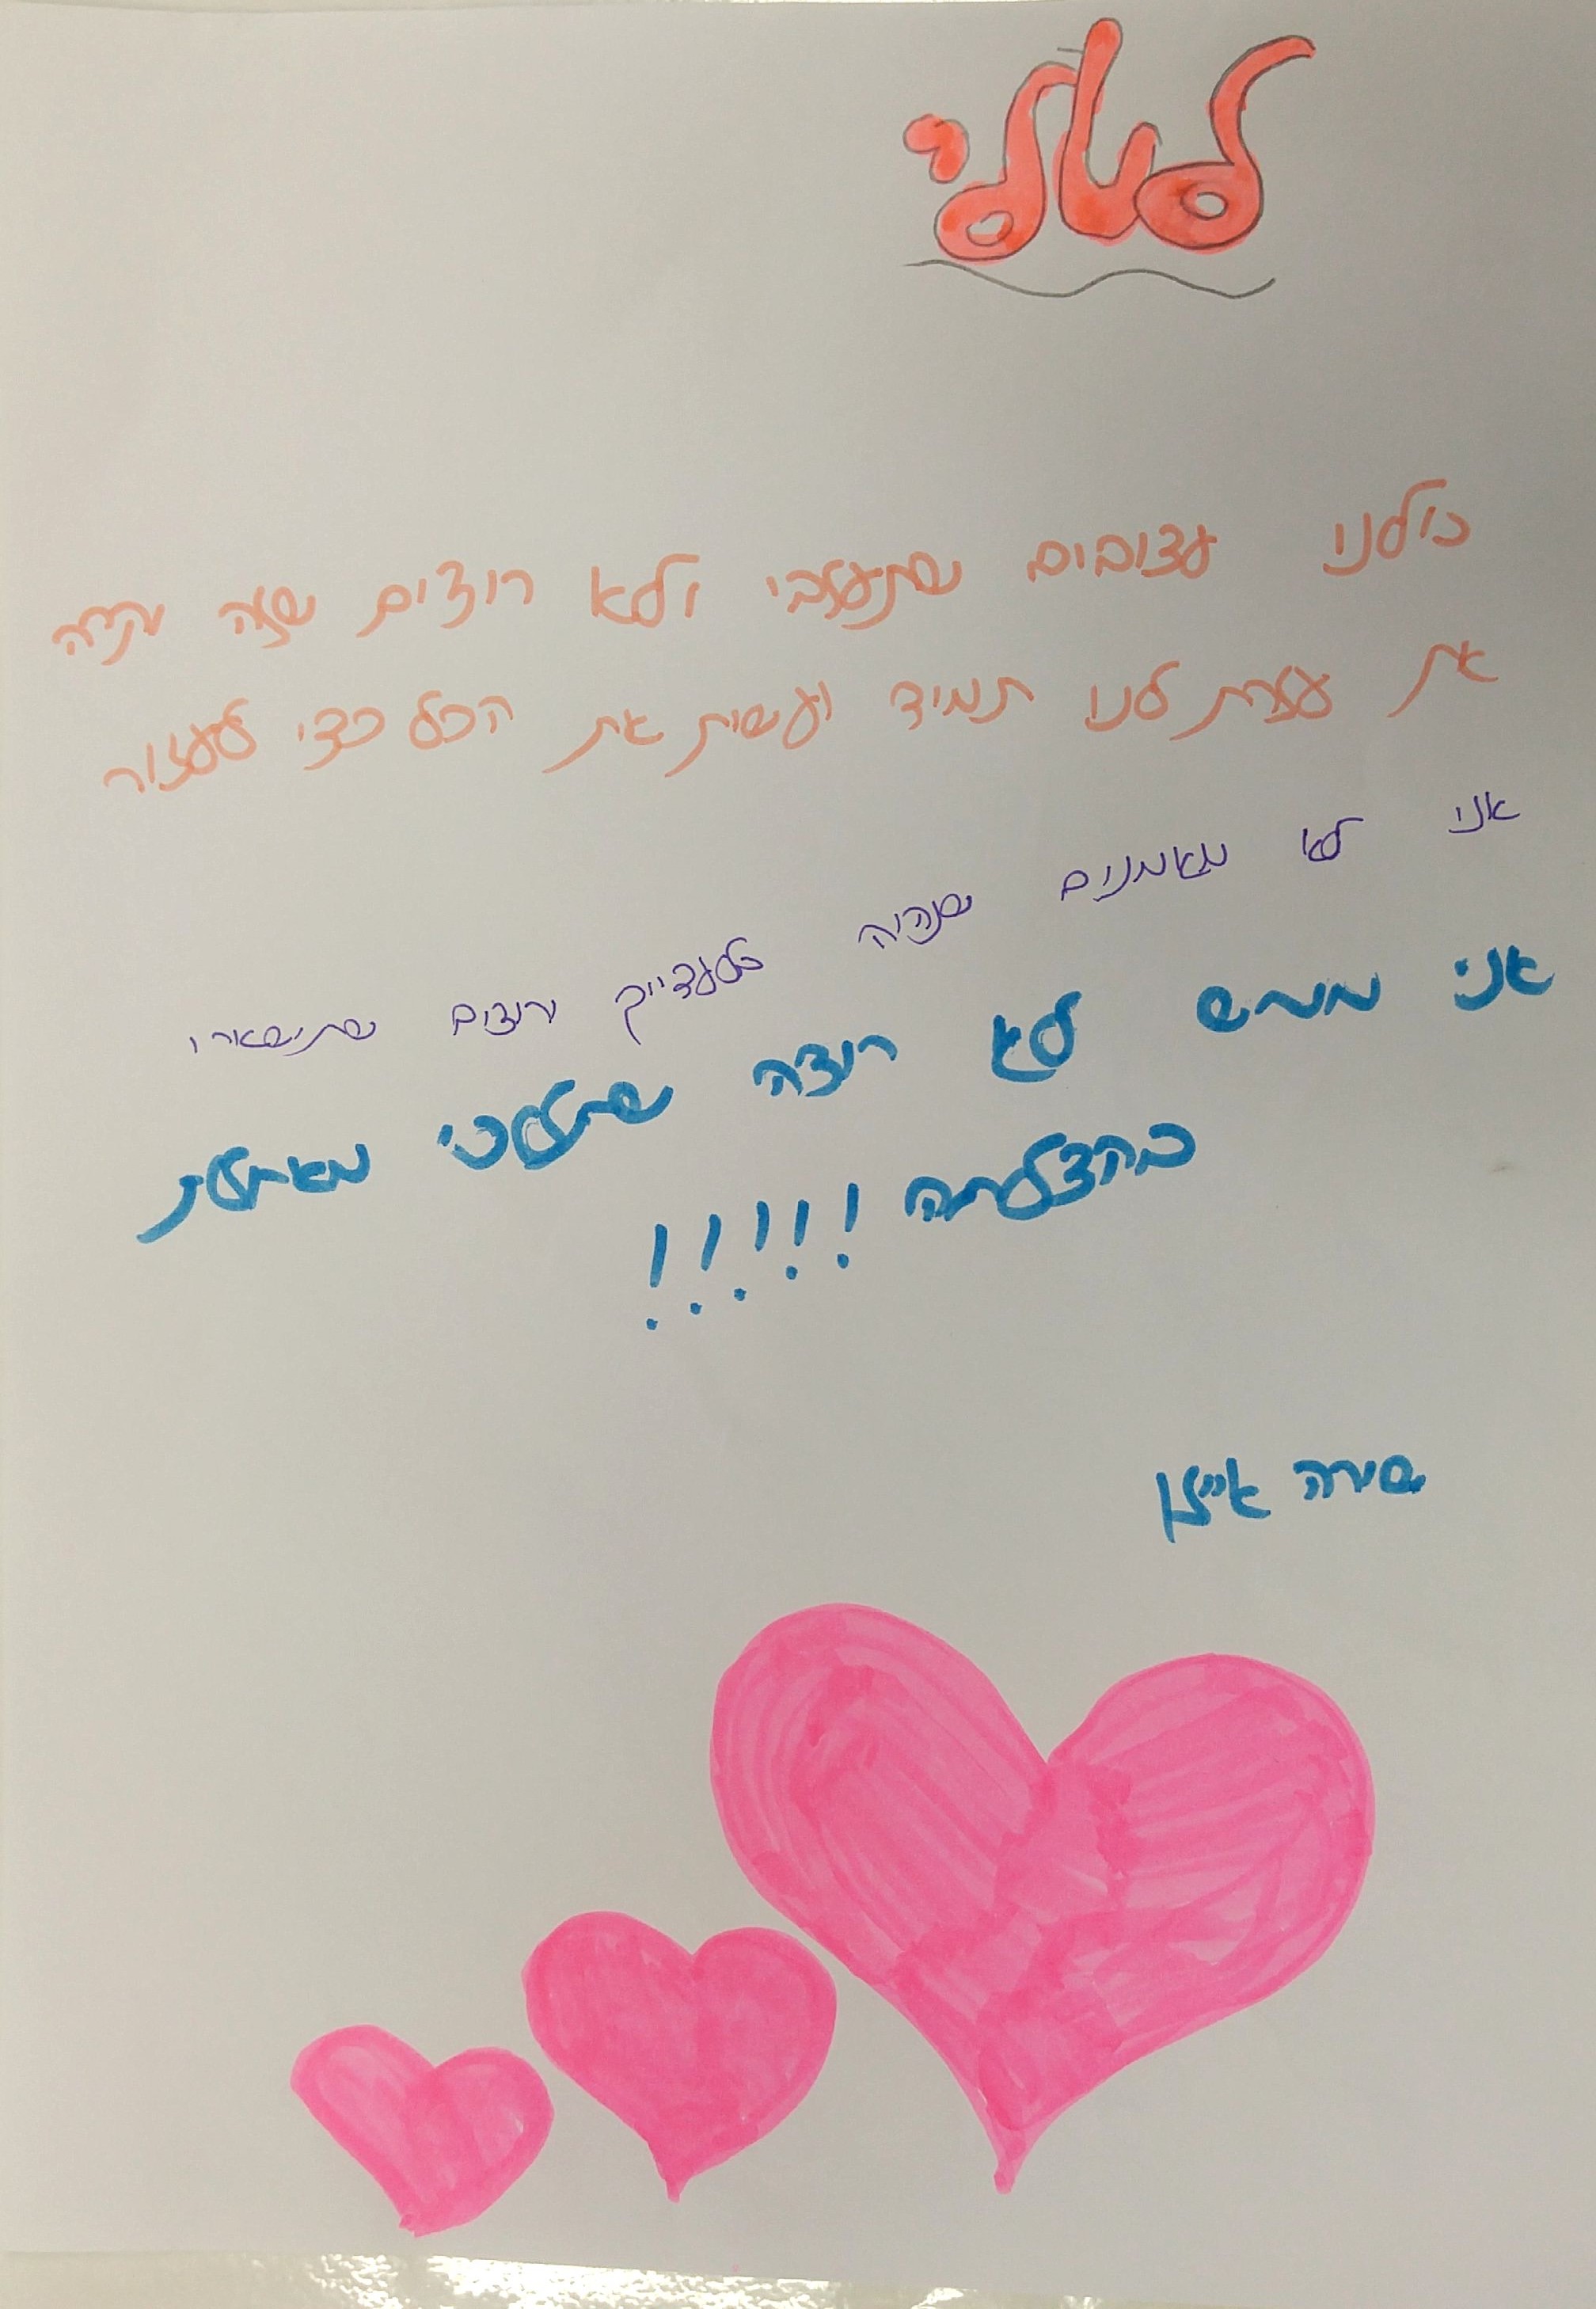 למלי
כולנו עצובים שתעזבי ולא רוצים שזה יקרה
את עזרת לנו תמיד ועשית את הכל כדי לעזור
אנו לא מאמנים שנהיה בלעדייך ורוצים שתישארו
אני ממש לא רוצה שתלכי מאחלת
בהצלחה!!!!!
שירה איילון